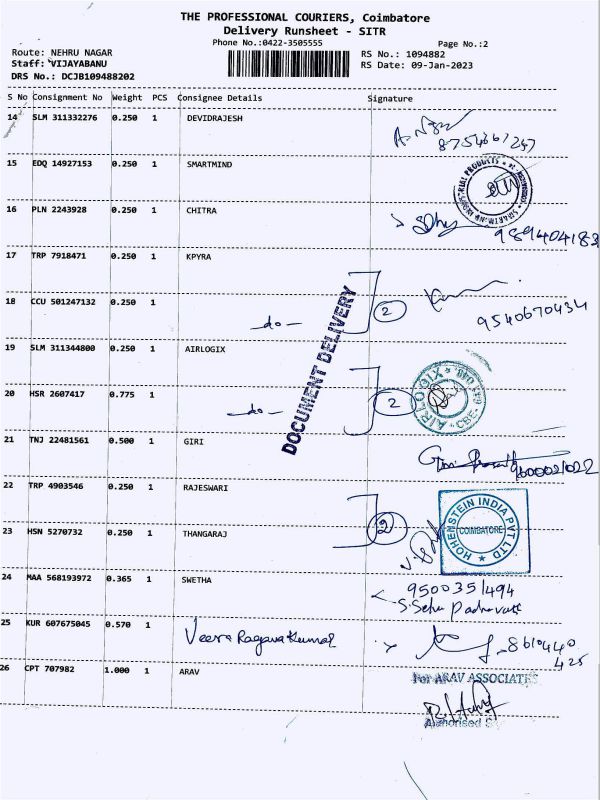 THE PROFESSIONAL COURIERS, Coimbatore
Delivery Runsheet - SITR
Phone No.:0422-3505555
Page No.:2
Route: NEHRU NAGAR
RS No.: 1094882
Staff: VIJAYABANU
RS Date: 09-Jan-2023
DRS No.: DCJB109488202
S No Consignment No Weight PCS Consignee Details Signature
14 SLM 311332276 0.250 1 DEVIDRAJESH
8754867247
15 EDQ 14927153 0.250 1 SMARTMIND
16 PLN 2243928 0.250 1 CHITRA
989404183
17 TRP 7918471 0.250 1 KPYRA
18 CCU 501247132 0.250 1 -do- 2
9540670434
DOCUMENT DELIVERY
19 SLM 311344800 0.250 1 AIRLOGIX
20 HSR 2607417 0.775 1 -do- 2
AIRLOGIX CBE-
21 TNJ 22481561 0.500 1 GIRI
9600021022
22 TRP 4903546 0.250 1 RAJESWARI
2
HOHENSTEIN INDIA PVT LTD
COIMBATORE
23 HSN 5270732 0.250 1 THANGARAJ
24 MAA 568193972 0.365 1 SWETHA
9500351494
25 KUR 607675045 0.570 1 Veera Ragava Kumar
8610440
425
26 CPT 707982 1.000 1 ARAV
For ARAV ASSOCIATES
Authorised